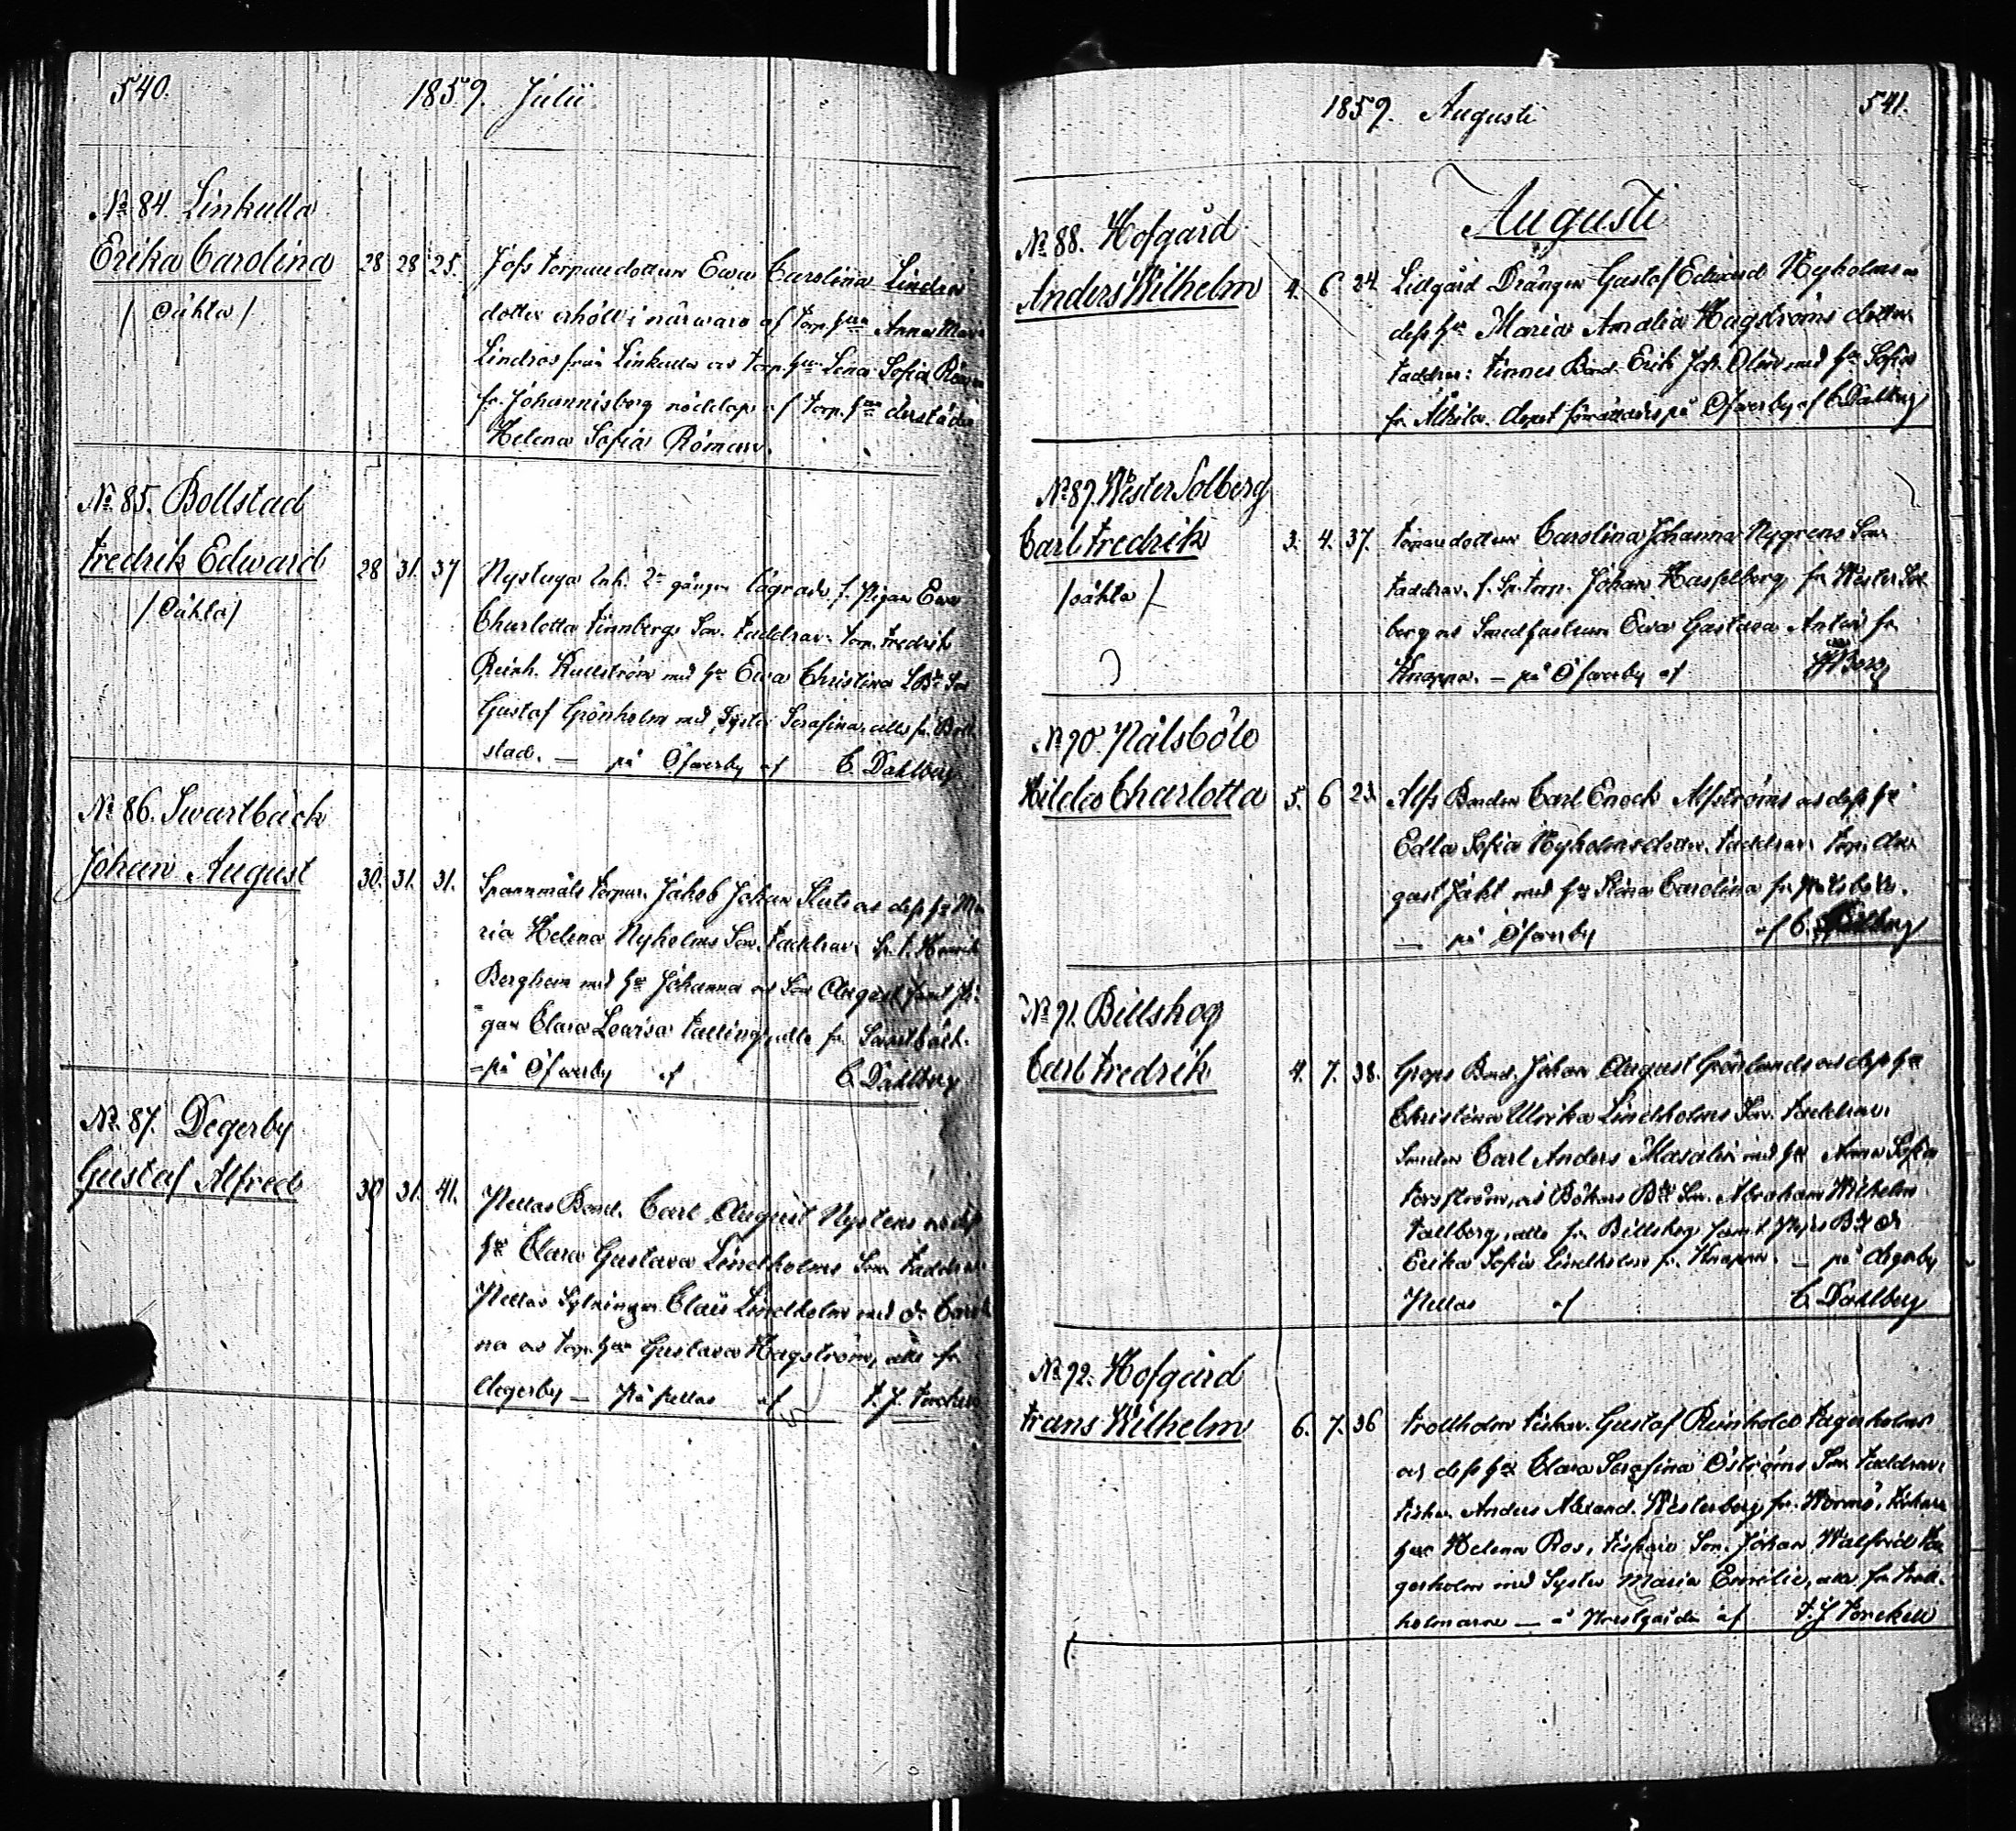 540.
1859. Julii
No 84. Linkulla
Erika Carolina
/Oäkta/
28 28 25.
Jofs torparedottren Ewa Carolina Lindros
dotter erhöll i närwaro af torp. hun Anna Maria
Lindros från Linkulla och torp. hun Lena Sofia Römon
fr. Johannisberg nöddop af torp. hun derstädes
Helena Sofia Röman.
No 85. Bollstad
Fredrik Edward
/Oäkta/
28 31. 37
Nystuga Inh. 2a gången lägrade f. Pigan Ewa
Charlotta Finnbergs Son. Faddrar: torp. Fredrik
Reinh. Kullström med hu Ewa Christina
Gustaf Grönholm med Syster Serafina, alla fr. Boll-
stad. — på Öfwerby af C. Dahlberg
No 86. Swartbäck
Johan August
30. 31. 31.
Spannmåls torpar. Jakob Johan Sluts och defs hu Ma
ria Helena Nyholms Son. Faddrar: Sp. t. Henrik
Berghem med hu Johanna och Son August samt Pi-
gan Clara Lovisa Falling, alla fr. Swartbäck.
— på Öfwerby af C. Dahlberg
No. 87. Degerby
Gustaf Alfred
30 31. 41.
Nellas Bond. Carl August Nystens och defs
hu Clara Gustava Lindholms Son Faddrar:
Nellas Sytningm. Claës Lindholm med dr Caroli
na och torp. hun Gustava Hagström, alla fr.
Degerby — På Nellas af F. J. Forckell
1859. Augusti
541.
Augusti
No 88. Hofgård
Anders Wilhelm
4. 6 24
Lillgård Drängen Gustaf Edward Nyholms o
defs hu Maria Amalia Hagströms
Faddrar: Finnes Bond. Erik Joh. med hu Sofia
fr. dopet förrättades på Öfwerby af C. Dahlberg
No 89. Wester Solberg
Carl Fredrik
/oäkta/
3. 4. 37.
Torparedottren Carolina Johanna Nygrens Son
Faddrar. f. Sp. torp. Johan Hasselberg fr. Wester Sol-
berg och Smedhustrun Ewa Gustava Antin fr.
Knappas. — på Öfwerby af
No 90. Pålsböle
Hilda Charlotta
5. 6 23.
Alfs Bonden Carl Enoch Alfströms och defs hu
Edla Sofia Nyholms dotter. Faddrar: torp. Au-
gust Jäkt med hu Stina Carolina fr. Pålsböle.
— på Öfwerby af C. Dahlberg
No 91. Billskog
Carl Fredrik
4. 7. 38.
Grops Bond. Johan August Grönlunds och defs hu
Christina Ulrika Lindholms Son. Faddrar:
Smeden Carl Anders Masalin med hu Anna Sofia
Forsström, och Bökars Bde Son. Abraham Wilhelm
Fallberg, alla fr. Billskog samt
Erika Sofia Lindholm fr. Knappas. — på Degerby
Nellas af C. Dahlberg
No 92. Hofgård
Frans Wilhelm
6. 7. 36
Trollholm Fiskar. Gustaf Reinhold Fagerholms
och defs hu Clara Serafina Öströms Son Faddrar:
Fiskar. Anders Alexand. Westerberg fr. Wormö, Fiskare
hun Helena Ros, Fiskare Son. Johan Walfrid Fa
gerholm med Syster Maria Emilie, alla fr. Troll-
holmarne — å Norrlgårdn af F. J. Forckell